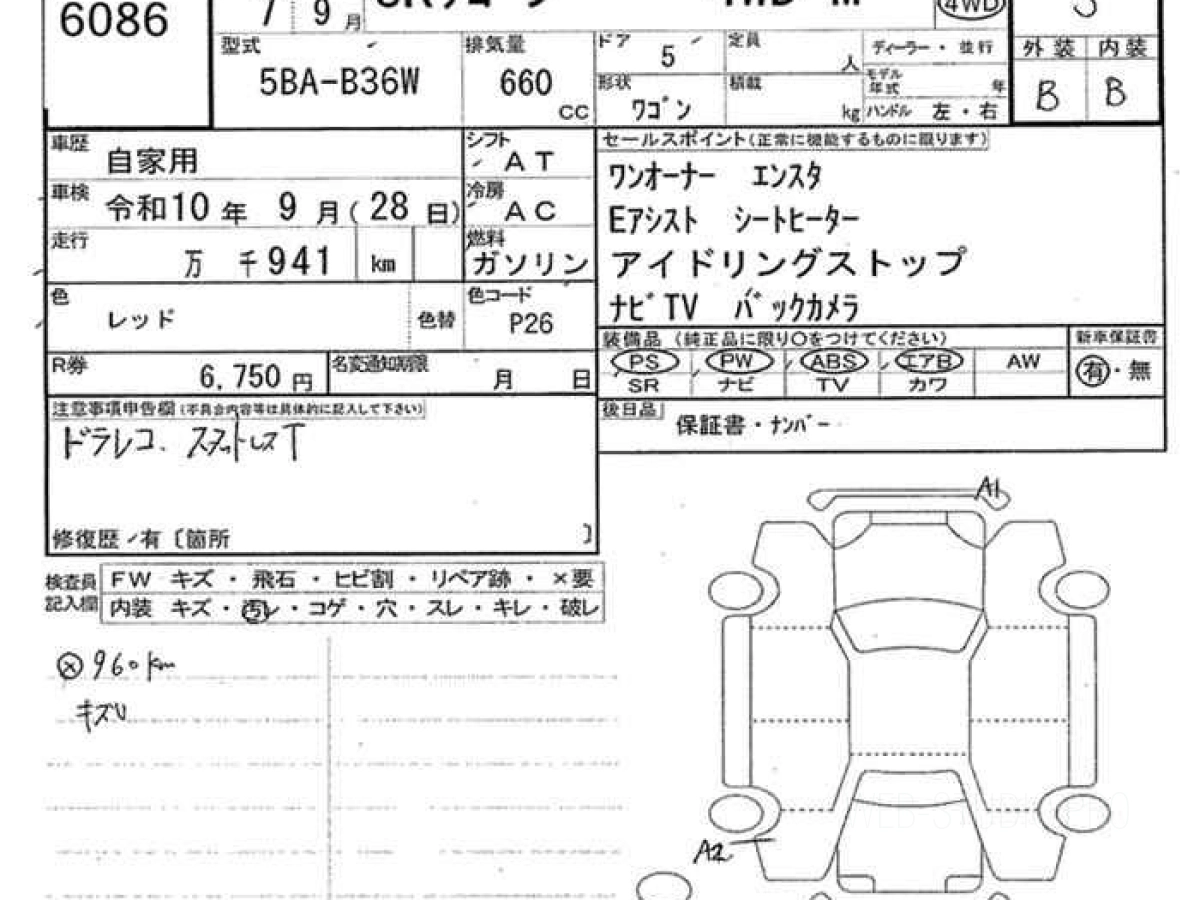 6086
7 9月
4WD
型式
5BA-B36W
排気量
660
CC
ドア
5
形状
ワゴン
定員
人
積載
kg
ディーラー・並行
モデル年式 年
ハンドル 左・右
外装 内装
B B
車歴
自家用
シフト
AT
車検
令和10年 9月(28日)
冷房
AC
走行
万 千941 km
燃料
ガソリン
色
レッド
色替
色コード
P26
R券
6,750円
名変通知期限
月 日
セールスポイント(正常に機能するものに限ります)
ワンオーナー エンスタ
Eアシスト シートヒーター
アイドリングストップ
ナビTV バックカメラ
装備品 (純正品に限り〇をつけてください)
新車保証書
PS PW ABS エアB AW
SR ナビ TV カワ
有・無
後日品
保証書・ナンバー
注意事項申告欄(不具合内容等は具体的に記入して下さい)
ドラレコ.
修復歴 有〔箇所 〕
検査員記入欄
FW キズ・飛石・ヒビ割・リペア跡・×要
内装 キズ・汚レ・コゲ・穴・スレ・キレ・破レ
960km
キズU
A1
A2